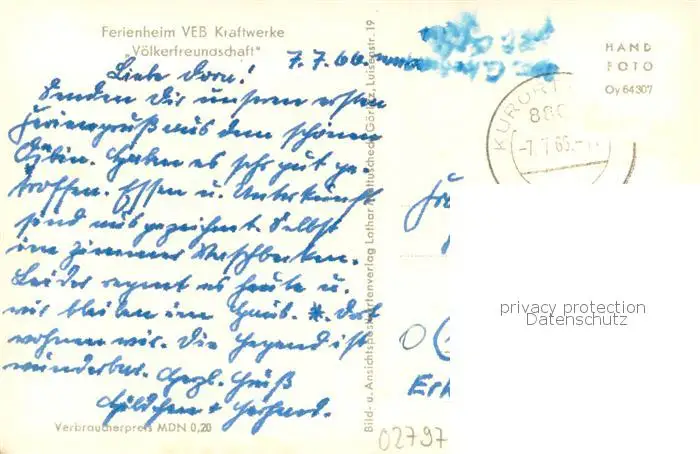 Ferienheim VEB Kraftwerke
„Völkerfreundschaft"
7. 7. 66.
Liebe Dora!
Senden Dir unseren ersten
Feriengruß aus dem schönen
Oybin. Haben es sehr gut ge-
troffen. Essen u. Unterkunft
sind ausgezeichnet. Selbst
im Zimmer Waschbecken.
Leider regnet es heute u.
wir bleiben im Haus. *. Dort
wohnen wir. Die Gegend ist
wunderbar. Herzl. Gruß
Verbraucherpreis MDN 0,20
Bild- u. Ansichtspostkartenverlag Lothar Görlitz, Luisenstr. 19
HAND
FOTO
Oy 64 307
KURORT
880
-7. 7. 65.
privacy protection
Datenschutz
02797